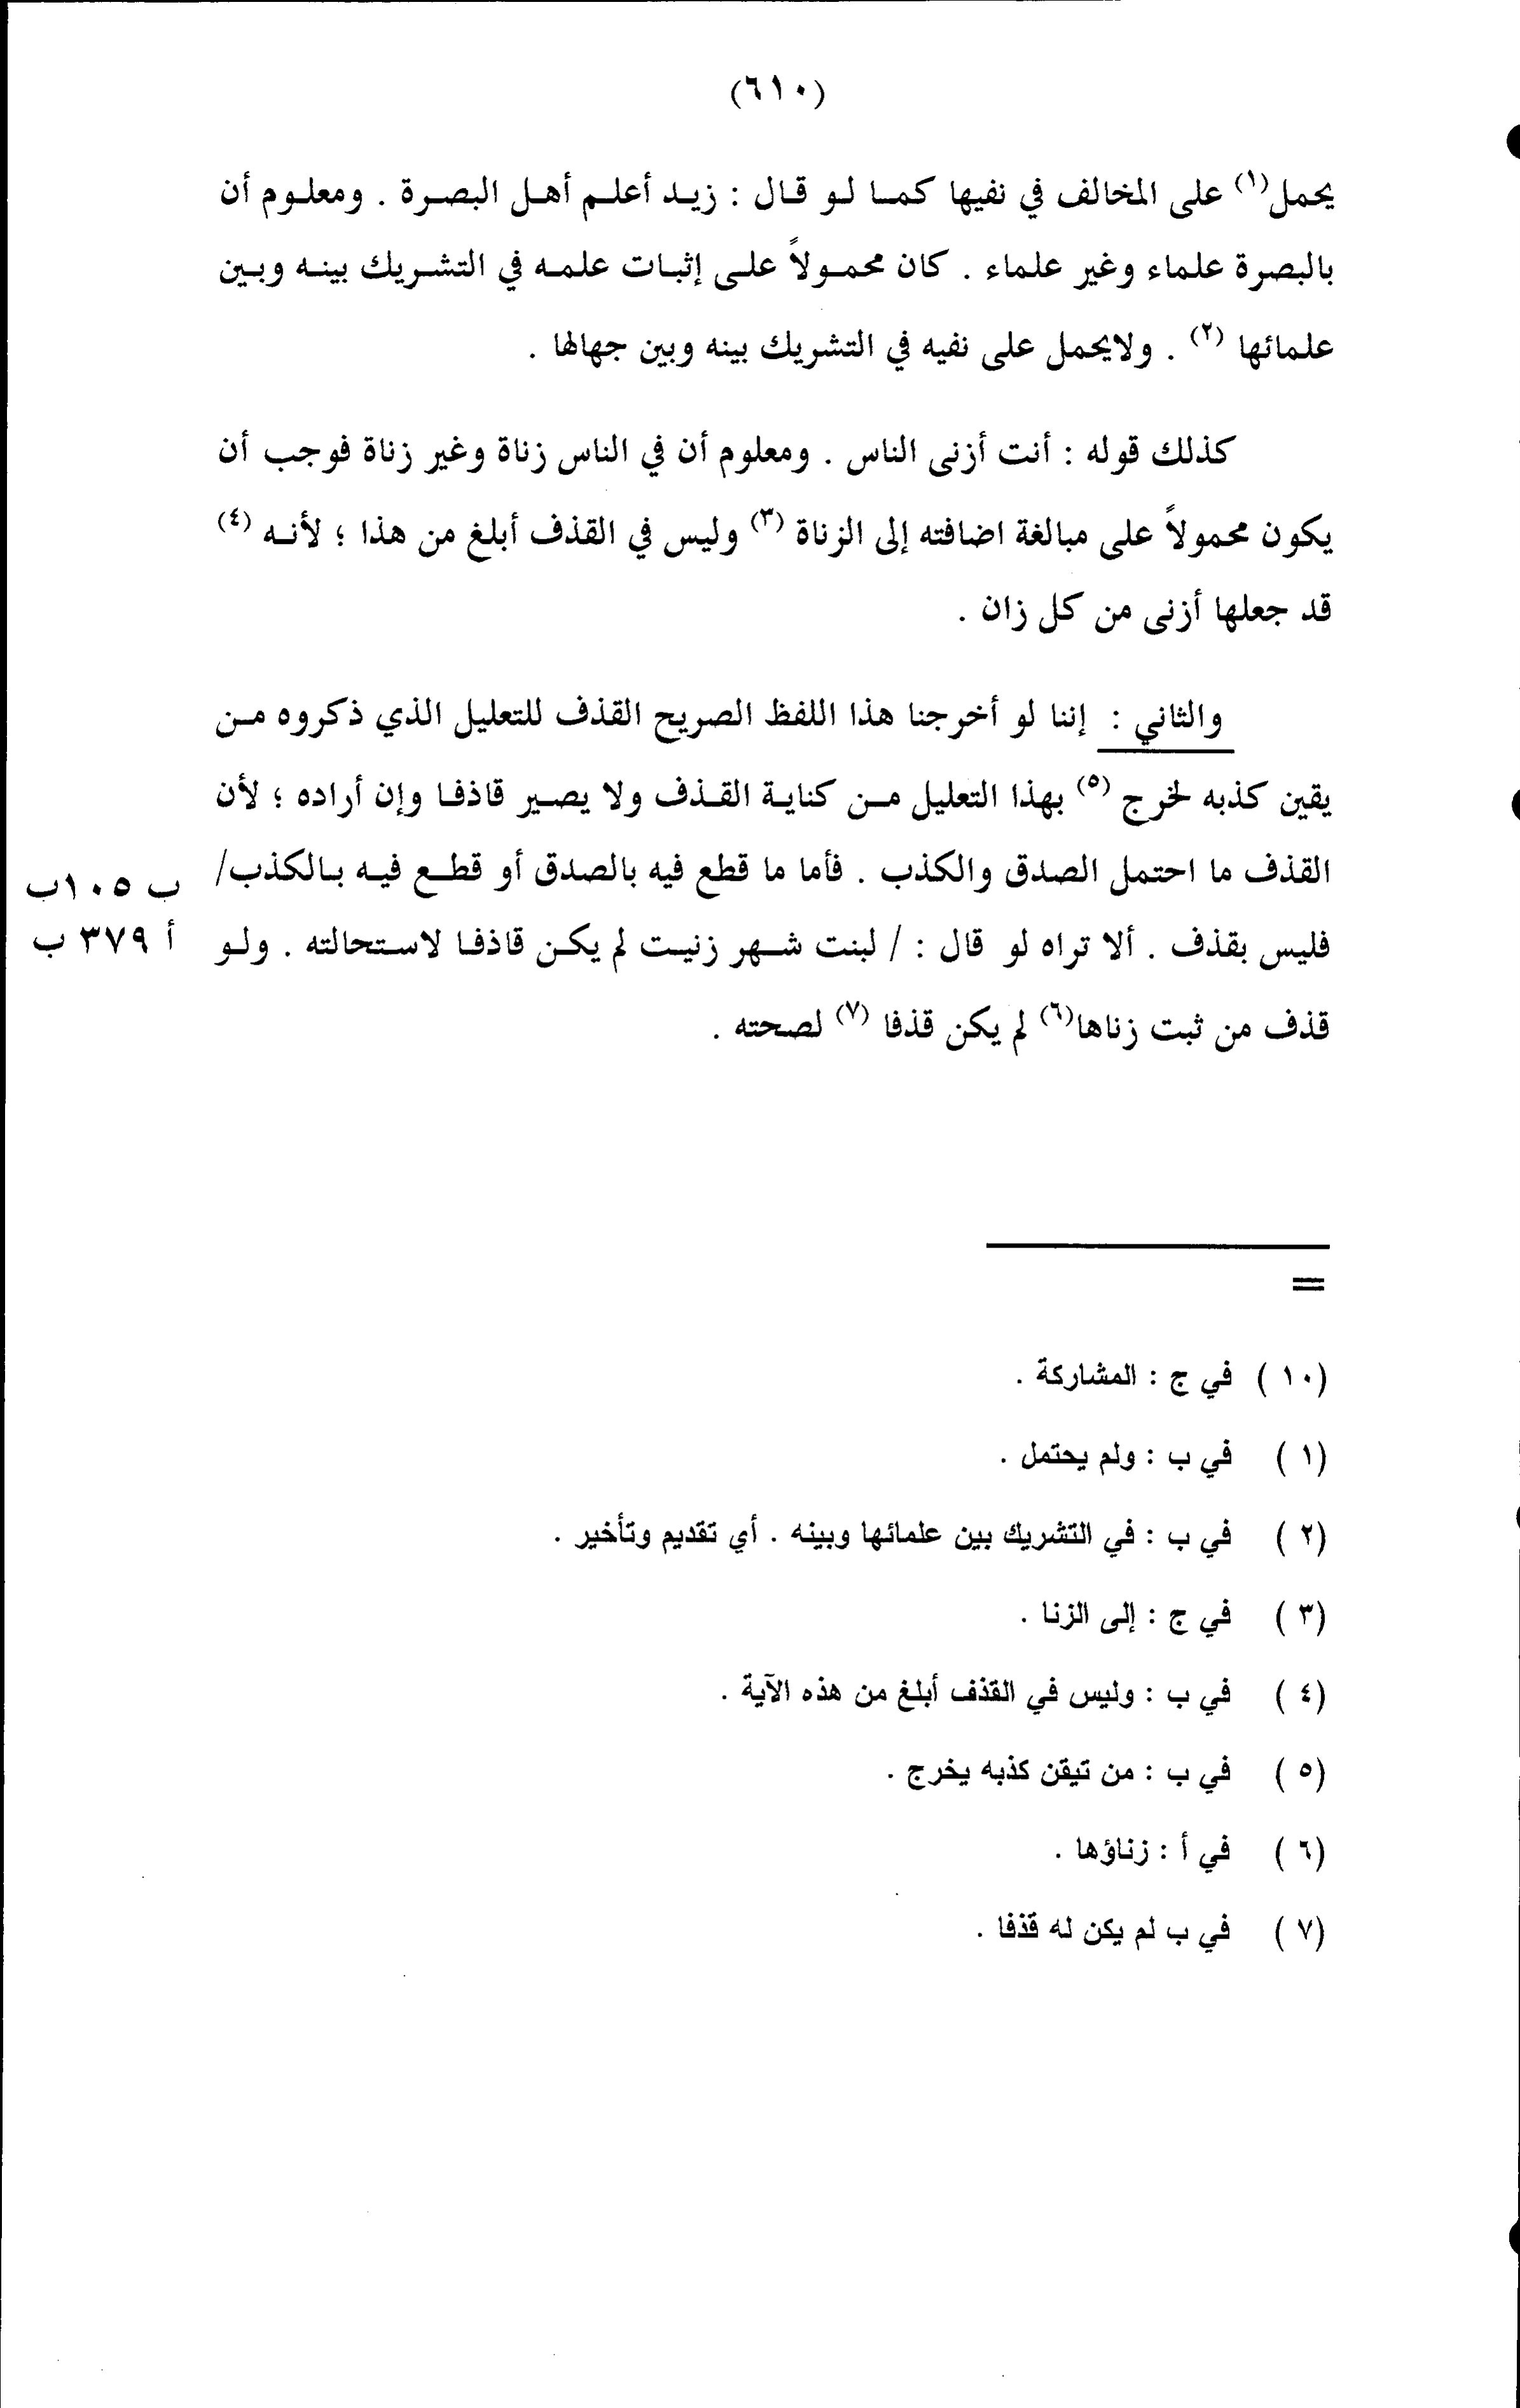 (٦١٠)
يحمل(١) على المخالف في نفيها كما لو قال : زيد أعلم أهل البصرة . ومعلوم أن
بالبصرة علماء وغير علماء . كان محمولاً على إثبات علمه في التشريك بينه وبين
علمائها (٢) . ولايحمل على نفيه في التشريك بينه وبين جهالها .
كذلك قوله : أنت أزنى الناس . ومعلوم أن في الناس زناة وغير زناة فوجب أن
يكون محمولاً على مبالغة اضافته إلى الزناة (٣) وليس في القذف أبلغ من هذا ؛ لأنه (٤)
قد جعلها أزنى من كل زان .
والثاني : إننا لو أخرجنا هذا اللفظ الصريح القذف للتعليل الذي ذكروه من
يقين كذبه لخرج (٥) بهذا التعليل من كناية القذف ولا يصير قاذفا وإن أراده ؛ لأن
القذف ما احتمل الصدق والكذب . فأما ما قطع فيه بالصدق أو قطع فيه بالكذب/ ب ١٠٥ب
فليس بقذف . ألا تراه لو قال : / لبنت شهر زنيت لم يكن قاذفا لاستحالته . ولو أ ٣٧٩ ب
قذف من ثبت زناها(٦) لم يكن قذفا (٧) لصحته .
=
(١٠) في ج : المشاركة .
(١) في ب : ولم يحتمل .
(٢) في ب : في التشريك بين علمائها وبينه . أي تقديم وتأخير .
(٣) في ج : إلى الزنا .
(٤) في ب : وليس في القذف أبلغ من هذه الآية .
(٥) في ب : من تيقن كذبه يخرج .
(٦) في أ : زناؤها .
(٧) في ب لم يكن له قذفا .